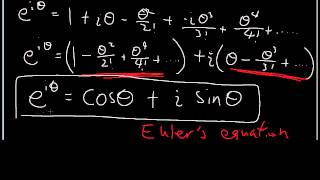 e^{iθ} = 1 + iθ - θ²/2! + -iθ³/3! + θ⁴/4! + ....
e^{iθ} = (1 - θ²/2! + θ⁴/4! + ....) + i(θ - θ³/3! + ....)
e^{iθ} = cosθ + i sinθ
Euler's equation